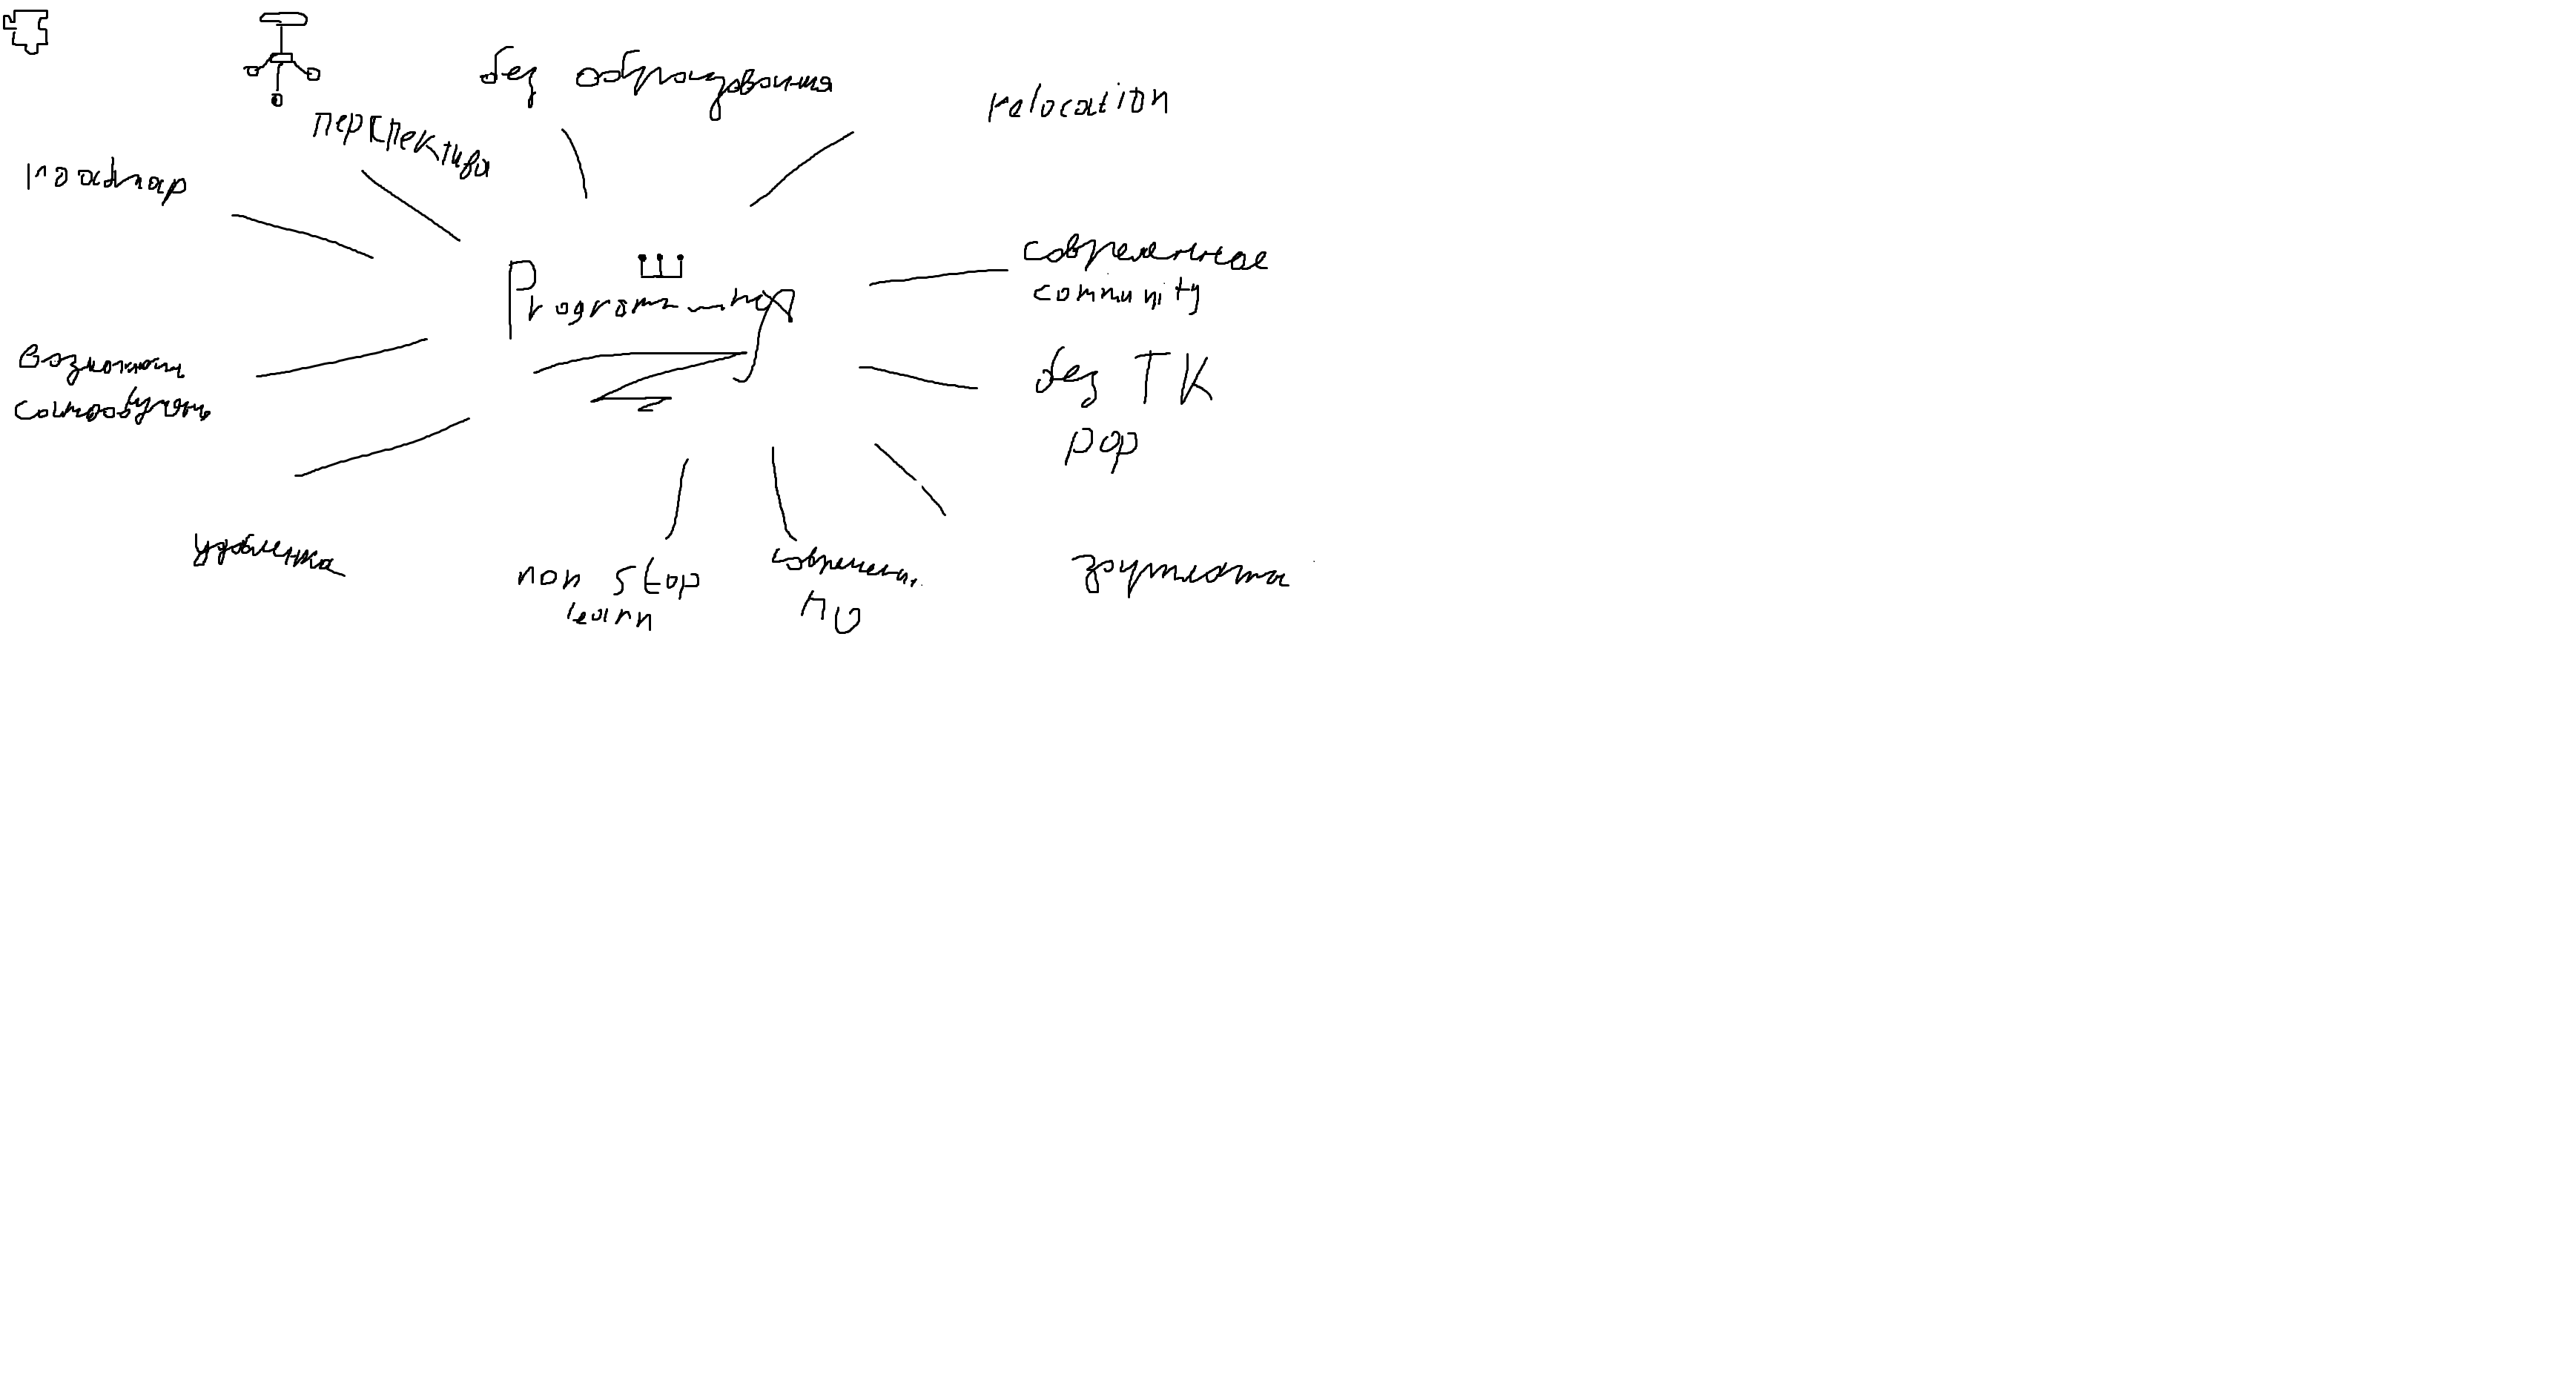 без образования
relocation
перспектива
roadmap
Programming
современное
community
возможность
самообучать
без ТК
pop
удаленка
non stop
learn
современн.
ПО
зрумлата